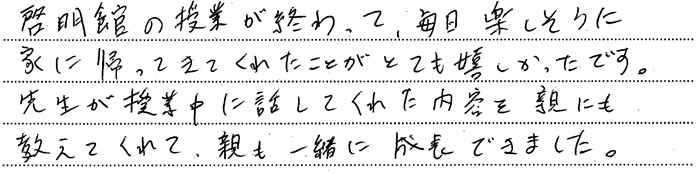 啓明館の授業が終わって、毎日楽しそうに
家に帰ってきてくれたことがとても嬉しかったです。
先生が授業中に話してくれた内容を親にも
教えてくれて、親も一緒に成長できました。